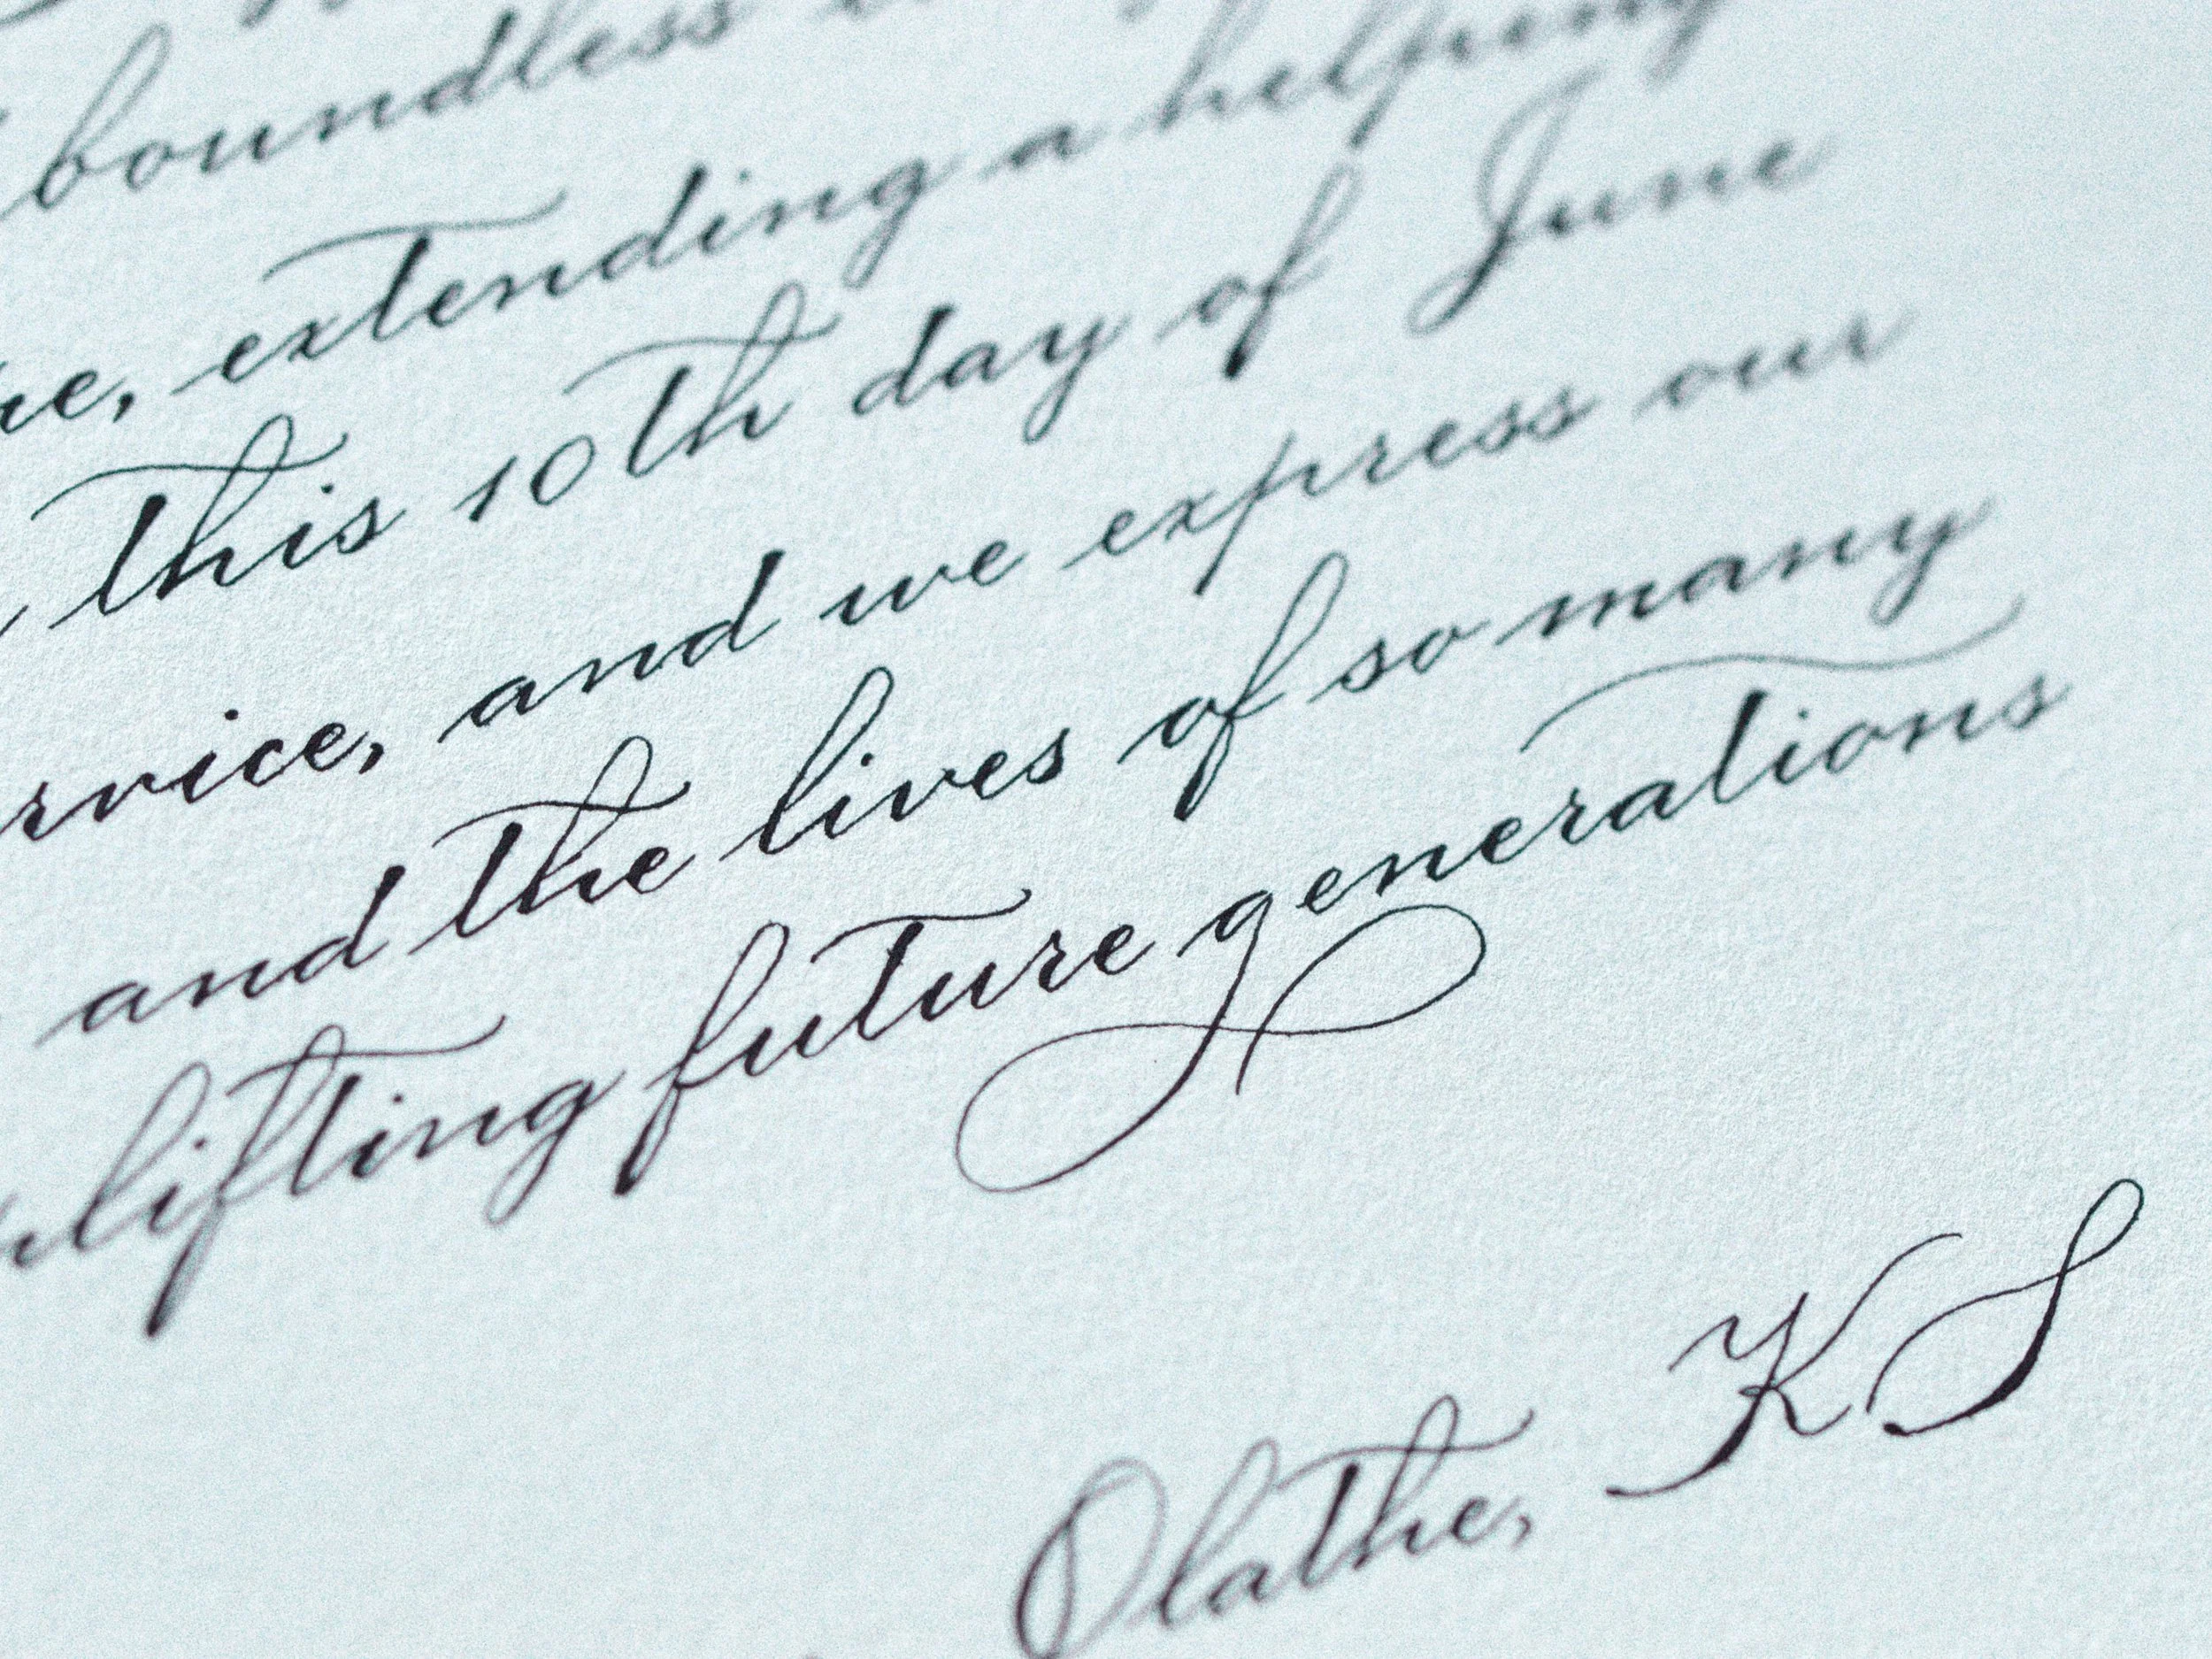 boundless
extending a helping
this 10th day of June
and we express our
and the lives of so many
future generations
Olathe, KS